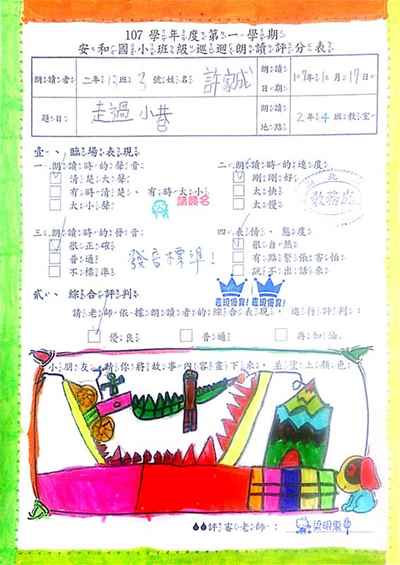 107學年度第一學期
安和國小班級巡迴朗讀評分表
朗讀者 二年12班3號姓名 許家成 朗讀日期 107年12月17日
題目 走過小巷 朗讀地點 2年4班教室
壹、臨場表現
一、朗讀時的聲音 二、朗讀時的速度
清楚大聲 剛剛好
有時清楚、有時大小 太快
太小聲 太慢
請簽名
教務處
三、朗讀時的發音 四、表情、態度
很正確 很自然
普通 有點緊張害怕
不標準 說不出話來
發音標準！
表現優良! 表現優良!
貳、綜合評判
請老師依據朗讀者的綜合表現，進行評判：
優良 普通 再加油
小朋友，請你將故事內容畫下來，並塗上顏色。
評審老師：